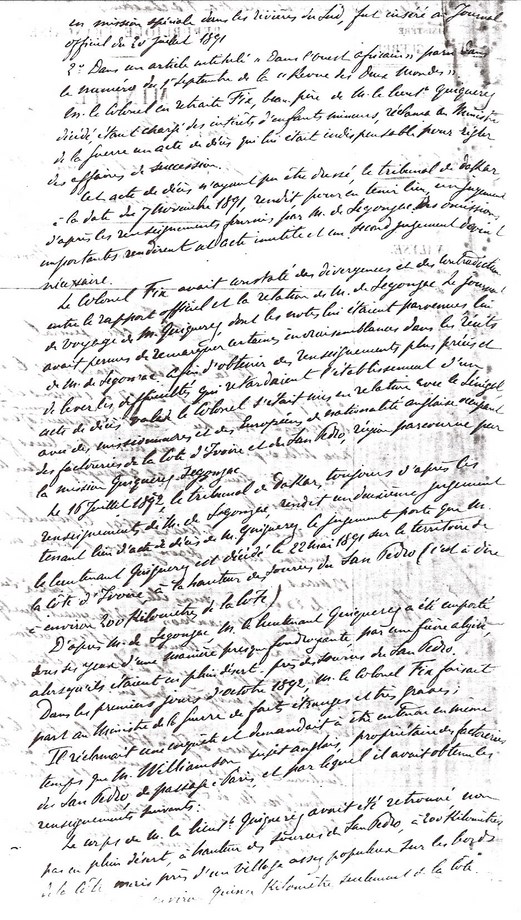 en mission spéciale dans les rivières du Sud, fut inséré au Journal
officiel du 20 juillet 1891
2° Dans un article intitulé « Dans l'ouest africain » paru dans
le numéro du 1er Septembre de la « Revue des Deux Mondes »
M. le Colonel en retraite Fix, beau-père de M. le lieut Quiquerez
décédé, étant chargé des intérêts d'enfants mineurs, réclama au Ministre
de la Guerre un acte de décès qui lui était indispensable pour régler
des affaires de succession.
Cet acte de décès n'ayant pu être dressé, le tribunal de Dakar
à la date du 7 novembre 1891, rendit pour en tenir lieu, un jugement
d'après les renseignements fournis par M. de Segonzac. Des omissions
importantes rendirent cet acte inutile et un second jugement devint
nécessaire.
Le Colonel Fix avait constaté des divergences et des contradictions
entre le rapport officiel et la relation de M. de Segonzac. Le journal
de voyage de M. Quiquerez, dont les notes lui étaient parvenues lui
avait permis de remarquer certaines invraisemblances dans les récits
de M. de Segonzac. Afin d'obtenir des renseignements plus précis et
de lever les difficultés qui retardaient l'établissement d'un
acte de décès valable le Colonel s'était mis en relation avec le Sénégal
avec des missionnaires et des Européens de nationalité anglaise occupant
des factoreries de la Côte d'Ivoire et du San Pedro, région parcourue par
la mission Quiquerez-Segonzac
Le 16 Juillet 1892, le tribunal de Dakar, toujours d'après les
renseignements de M. de Segonzac, rendit un deuxième jugement
tenant lieu d'acte de décès de M. Quiquerez, le jugement porte que M.
le lieutenant Quiquerez est décédé le 22 mai 1891 sur le territoire de
la Côte d'Ivoire à la hauteur des sources du San Pedro (c'est à dire
à environ 200 Kilomètre de la Côte)
D'après M. de Segonzac, M. le lieutenant Quiquerez a été emporté
sous ses yeux d'une manière presque foudroyante par une fièvre algide,
alors qu'ils étaient en plein désert, près des sources du San Pedro.
Dans les premiers jours d'octobre 1892, M. le Colonel Fix faisait
part au Ministre de la Guerre de faits étranges et très graves;
Il réclamait une enquête et demandait à être entendu en même
temps que M. Williamson sujet anglais, propriétaire des factoreries
du San Pedro, de passage à Paris, et par lequel il avait obtenu les
renseignements suivants:
Le corps de M. le lieut Quiquerez avait été retrouvé non
pas en plein désert, à hauteur des sources du San Pedro, à 200 Kilomètres
de la Côte mais près d'un village assez populeux sur les bords
environ quinze Kilomètre seulement de la Côte.